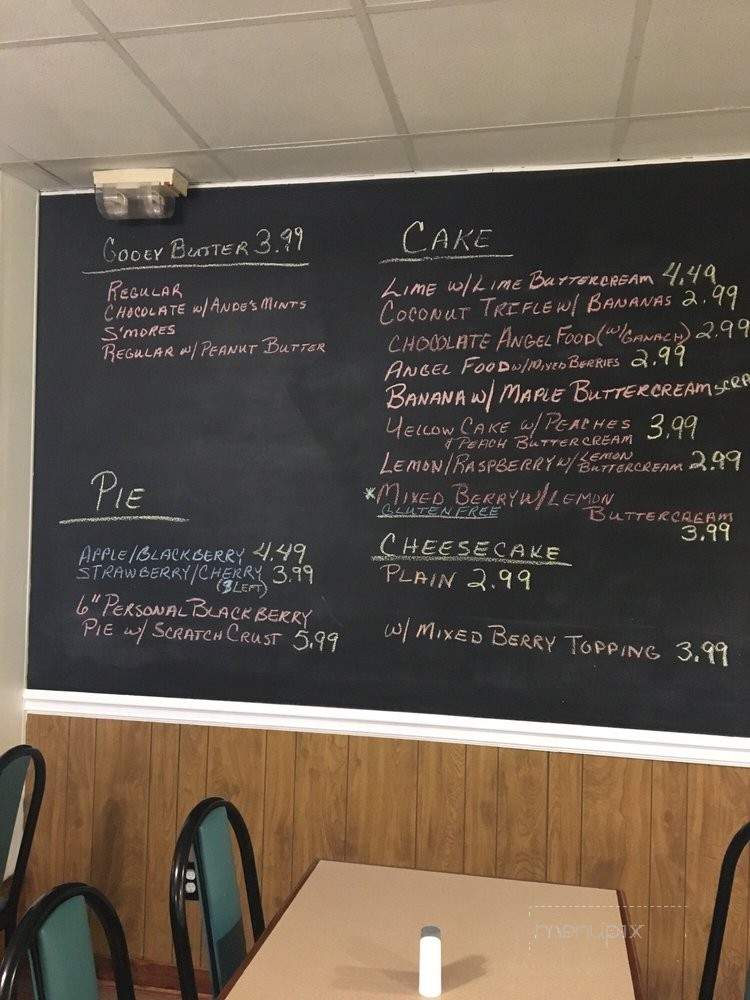 GOOEY BUTTER 3.99
REGULAR
CHOCOLATE W/ ANDE'S MINTS
S'MORES
REGULAR W/ PEANUT BUTTER
PIE
APPLE/BLACKBERRY 4.49
STRAWBERRY/CHERRY 3.99
(3 LEFT)
6" PERSONAL BLACKBERRY
PIE W/ SCRATCH CRUST 5.99
CAKE
LIME W/ LIME BUTTERCREAM 4.49
COCONUT TRIFLE W/ BANANAS 2.99
CHOCOLATE ANGEL FOOD (W/ GANACH) 2.99
ANGEL FOOD W/ MIXED BERRIES 2.99
BANANA W/ MAPLE BUTTERCREAM
YELLOW CAKE W/ PEACHES 3.99
& PEACH BUTTERCREAM
LEMON/RASPBERRY W/ LEMON BUTTERCREAM 2.99
*MIXED BERRY W/ LEMON
GLUTEN FREE BUTTERCREAM
3.99
CHEESECAKE
PLAIN 2.99
W/ MIXED BERRY TOPPING 3.99
menupix